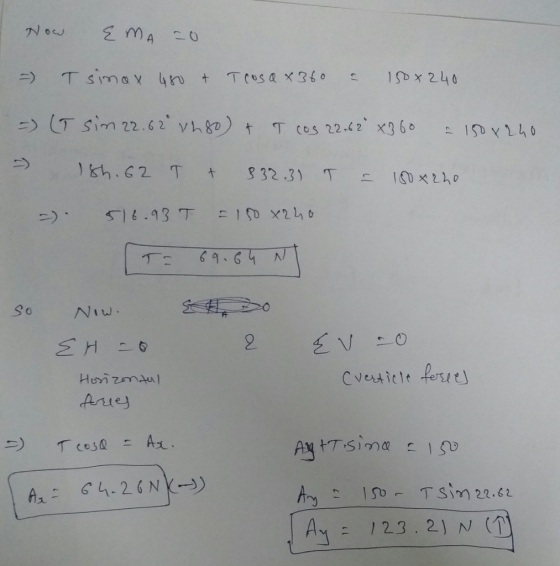 Now Σ MA = 0
=> T sinα x 480 + T cosα x 360 = 150 x 240
=> (T sin 22.62° x 480) + T cos 22.62° x 360 = 150 x 240
=> 184.62 T + 332.31 T = 150 x 240
=> 516.93 T = 150 x 240
T = 69.64 N
So Now.
Σ H = 0 & Σ V = 0
Horizontal forces (verticle forces)
=> T cosα = Ax. Ay + T.sinα = 150
Ax = 64.26 N (→) Ay = 150 - T sin 22.62
Ay = 123.21 N (↑)